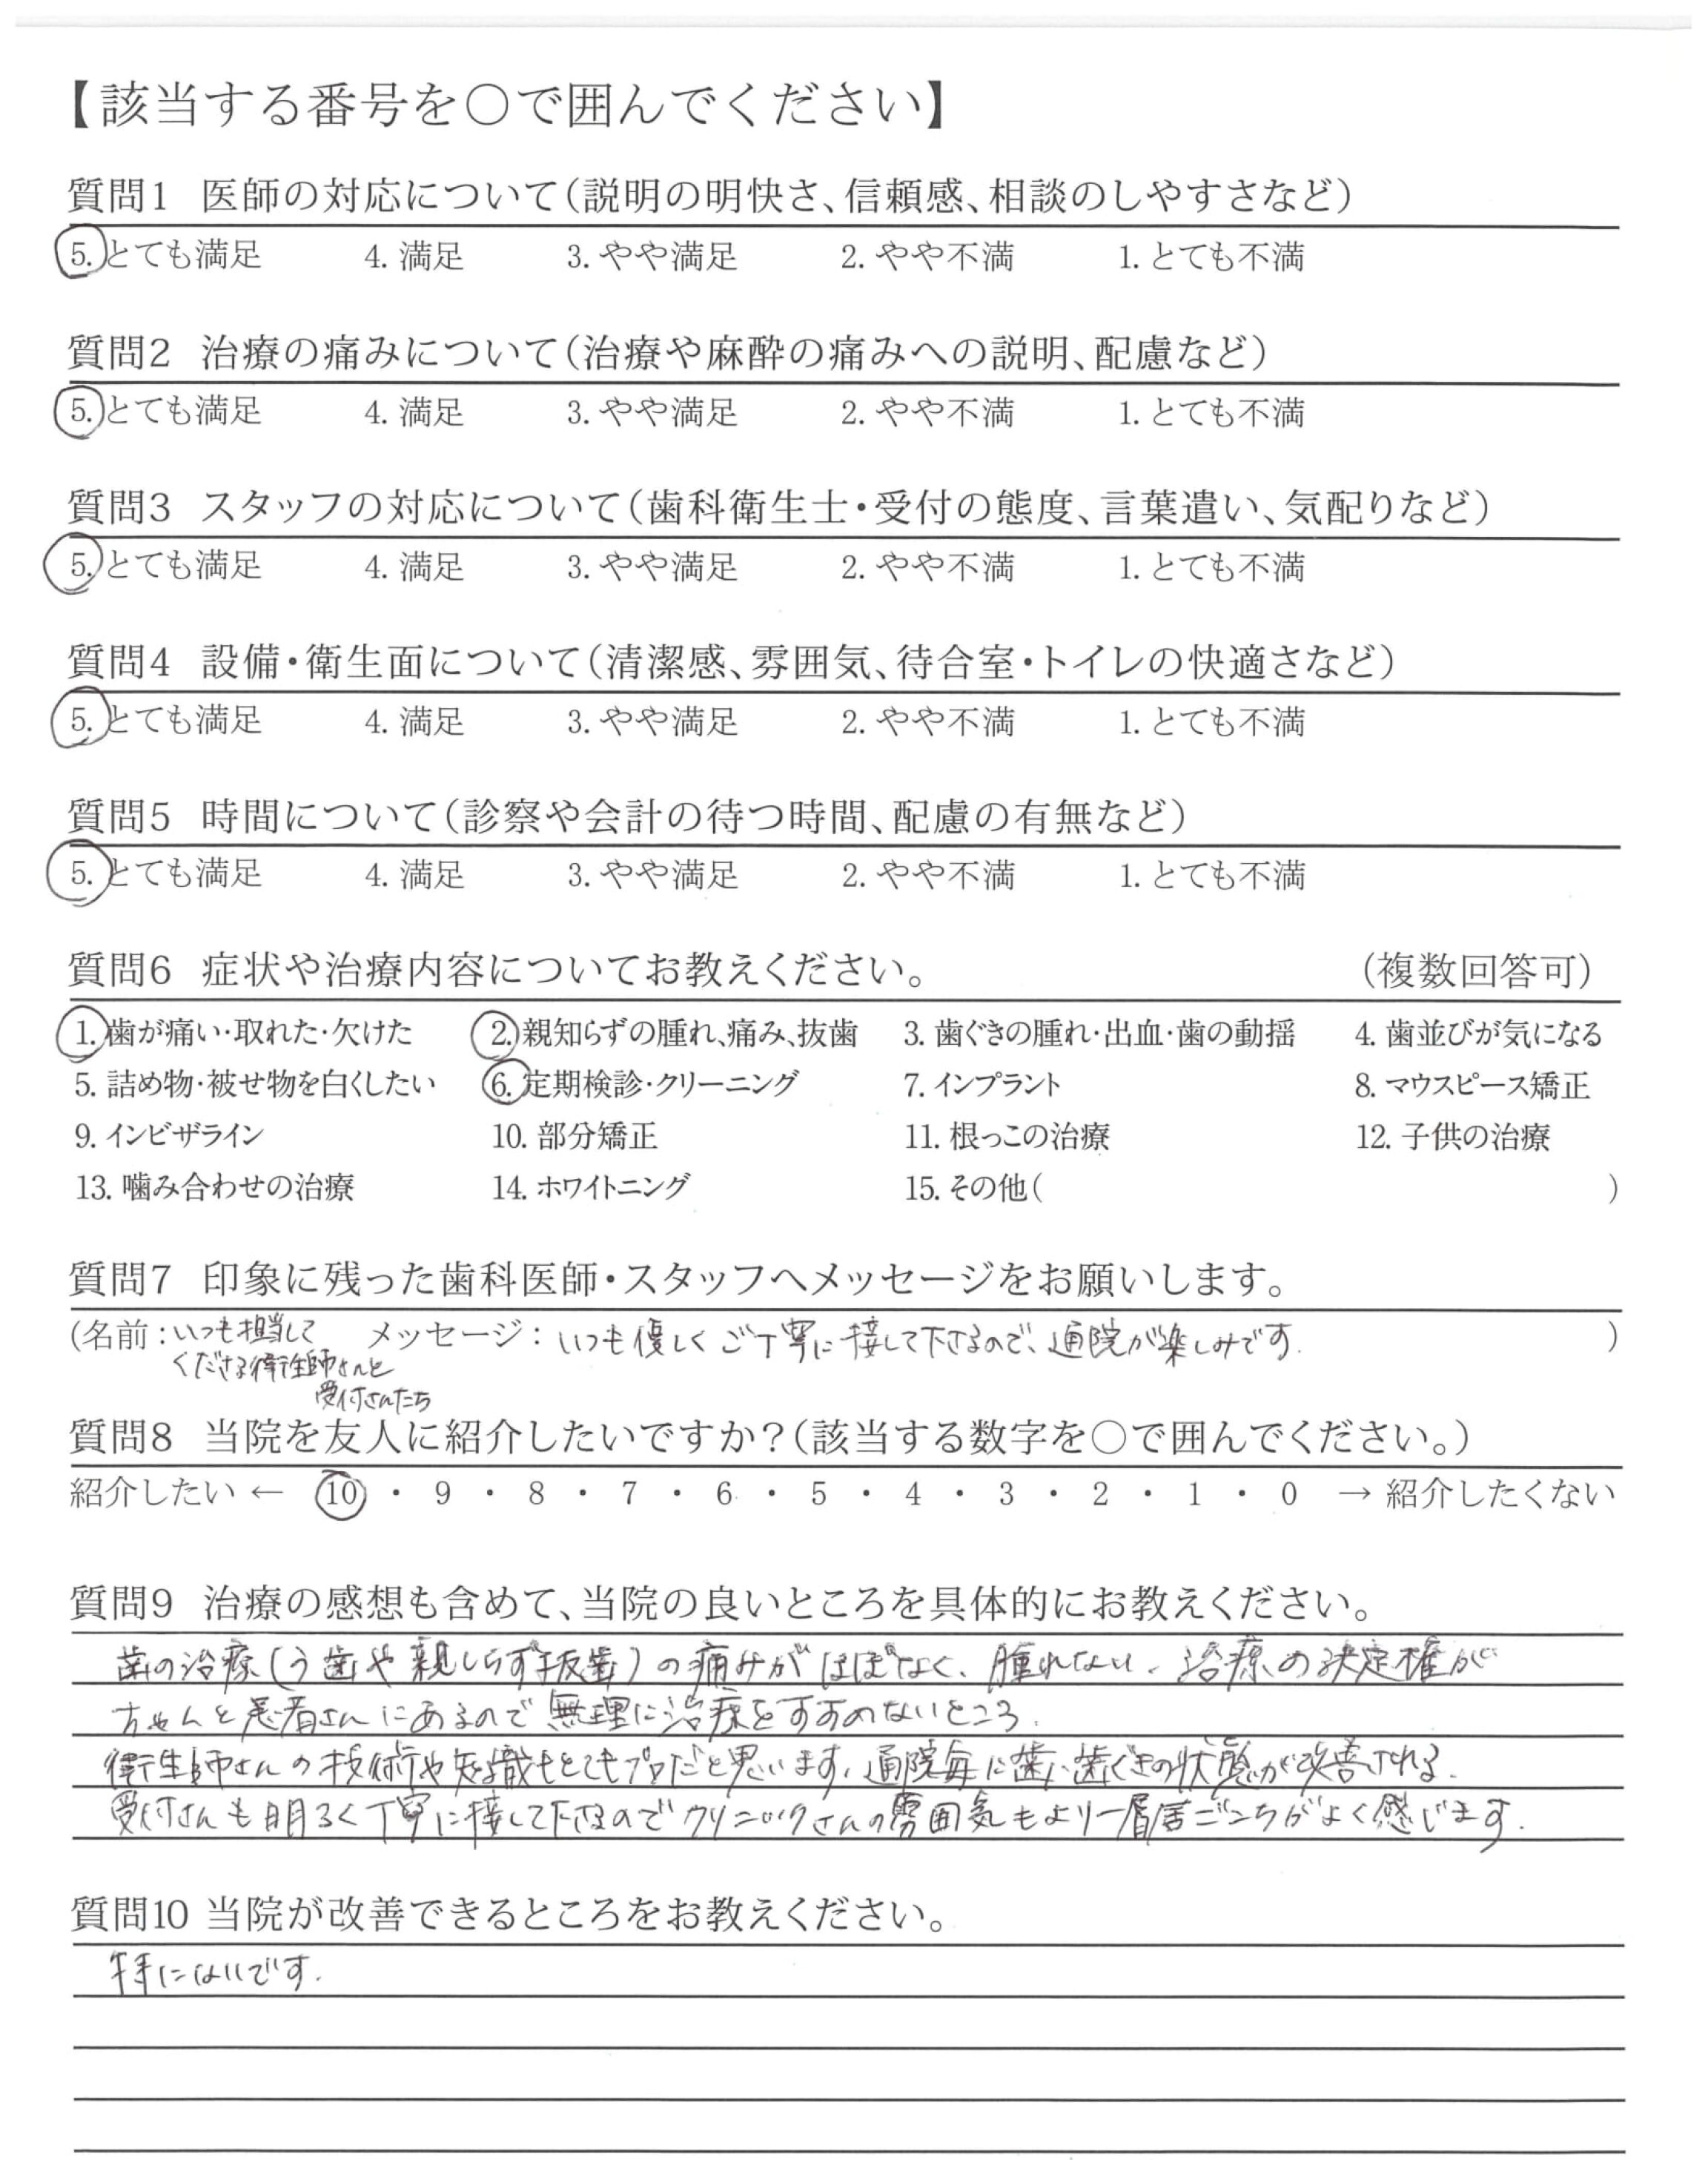 【該当する番号を○で囲んでください】
質問1 医師の対応について(説明の明快さ、信頼感、相談のしやすさなど)
5. とても満足 4. 満足 3. やや満足 2. やや不満 1. とても不満
質問2 治療の痛みについて(治療や麻酔の痛みへの説明、配慮など)
5. とても満足 4. 満足 3. やや満足 2. やや不満 1. とても不満
質問3 スタッフの対応について(歯科衛生士・受付の態度、言葉遣い、気配りなど)
5. とても満足 4. 満足 3. やや満足 2. やや不満 1. とても不満
質問4 設備・衛生面について(清潔感、雰囲気、待合室・トイレの快適さなど)
5. とても満足 4. 満足 3. やや満足 2. やや不満 1. とても不満
質問5 時間について(診察や会計の待つ時間、配慮の有無など)
5. とても満足 4. 満足 3. やや満足 2. やや不満 1. とても不満
質問6 症状や治療内容についてお教えください。 (複数回答可)
1. 歯が痛い・取れた・欠けた 2. 親知らずの腫れ、痛み、抜歯 3. 歯ぐきの腫れ・出血・歯の動揺 4. 歯並びが気になる
5. 詰め物・被せ物を白くしたい 6. 定期検診・クリーニング 7. インプラント 8. マウスピース矯正
9. インビザライン 10. 部分矯正 11. 根っこの治療 12. 子供の治療
13. 噛み合わせの治療 14. ホワイトニング 15. その他( )
質問7 印象に残った歯科医師・スタッフへメッセージをお願いします。
(名前:いつも担当して メッセージ:いつも優しくご丁寧に接して下さるので、通院が楽しみです. )
くださる衛生師さんと
受付さんたち
質問8 当院を友人に紹介したいですか?(該当する数字を○で囲んでください。)
紹介したい ← 10 ・ 9 ・ 8 ・ 7 ・ 6 ・ 5 ・ 4 ・ 3 ・ 2 ・ 1 ・ 0 → 紹介したくない
質問9 治療の感想も含めて、当院の良いところを具体的にお教えください。
歯の治療(う歯や親しらず抜歯)の痛みがほぼなく、腫れない。治療の決定権が
ちゃんと患者さんにあるので無理に治療をすすめないところ.
衛生師さんの技術や知識もとてもプロだと思います。通院毎に歯・歯ぐきの状態が改善される.
受付さんも明るく丁寧に接して下さるのでクリニックさんの雰囲気もより一層居ごこちがよく感じます.
質問10 当院が改善できるところをお教えください。
特にないです.